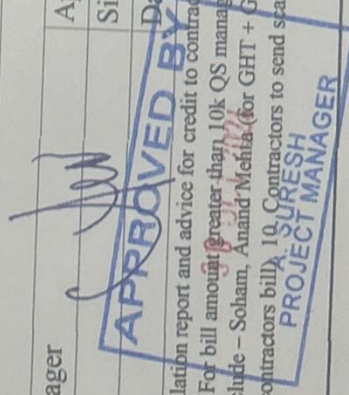 A
Si
Da
ager
APPROVED BY
lation report and advice for credit to contrac
For bill amount greater than 10k QS manag
lude – Soham, Anand Mehta (for GHT + G
contractors bill) 10. Contractors to send sca
A. SURESH
PROJECT MANAGER